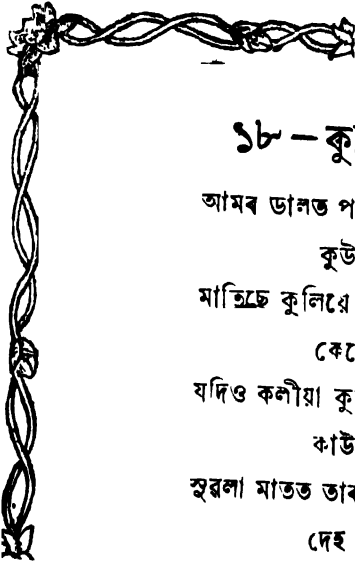 ১৮ – কু
আমৰ ডালত প
কুউ
মাতিছে কুলিয়ে
কে
যদিও কলীয়া কু
কাউ
সুৱলা মাতত তাৰ
দেহ